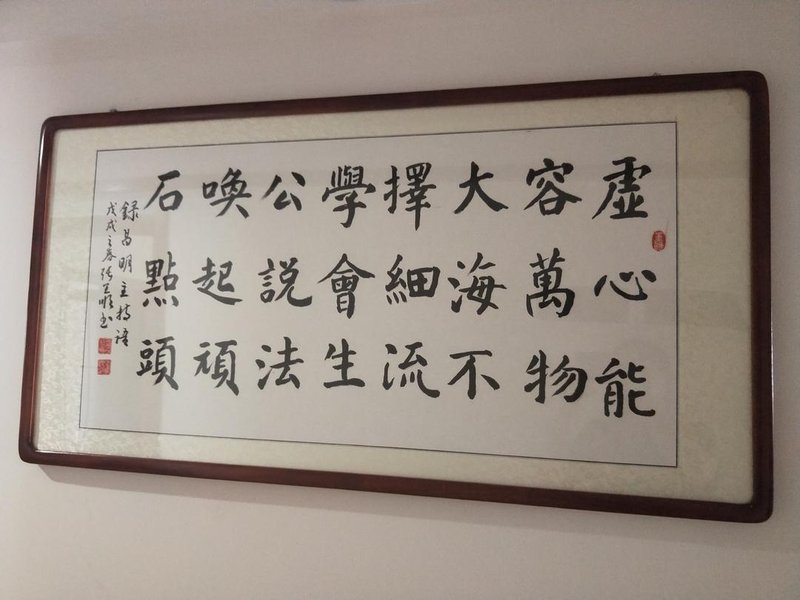 虛心能
容萬物
大海不
擇細流
學會生
公說法
喚起頑
石點頭
錄昌明主持語
戊戌之春張